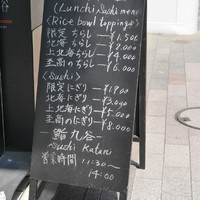 (Lunch) Sushi menu
(Rice bowl toppings)
限定ちらし ¥1.500
北海ちらし ¥2.000
上北海ちらし ¥4.000
至高のちらし ¥6.000
(Sushi)
限定にぎり ¥1900
北海にぎり ¥3.000
上北海にぎり ¥5.000
至高のにぎり ¥8.000
鮨九谷
Sushi Kutani
営業時間 11:30~
14:00